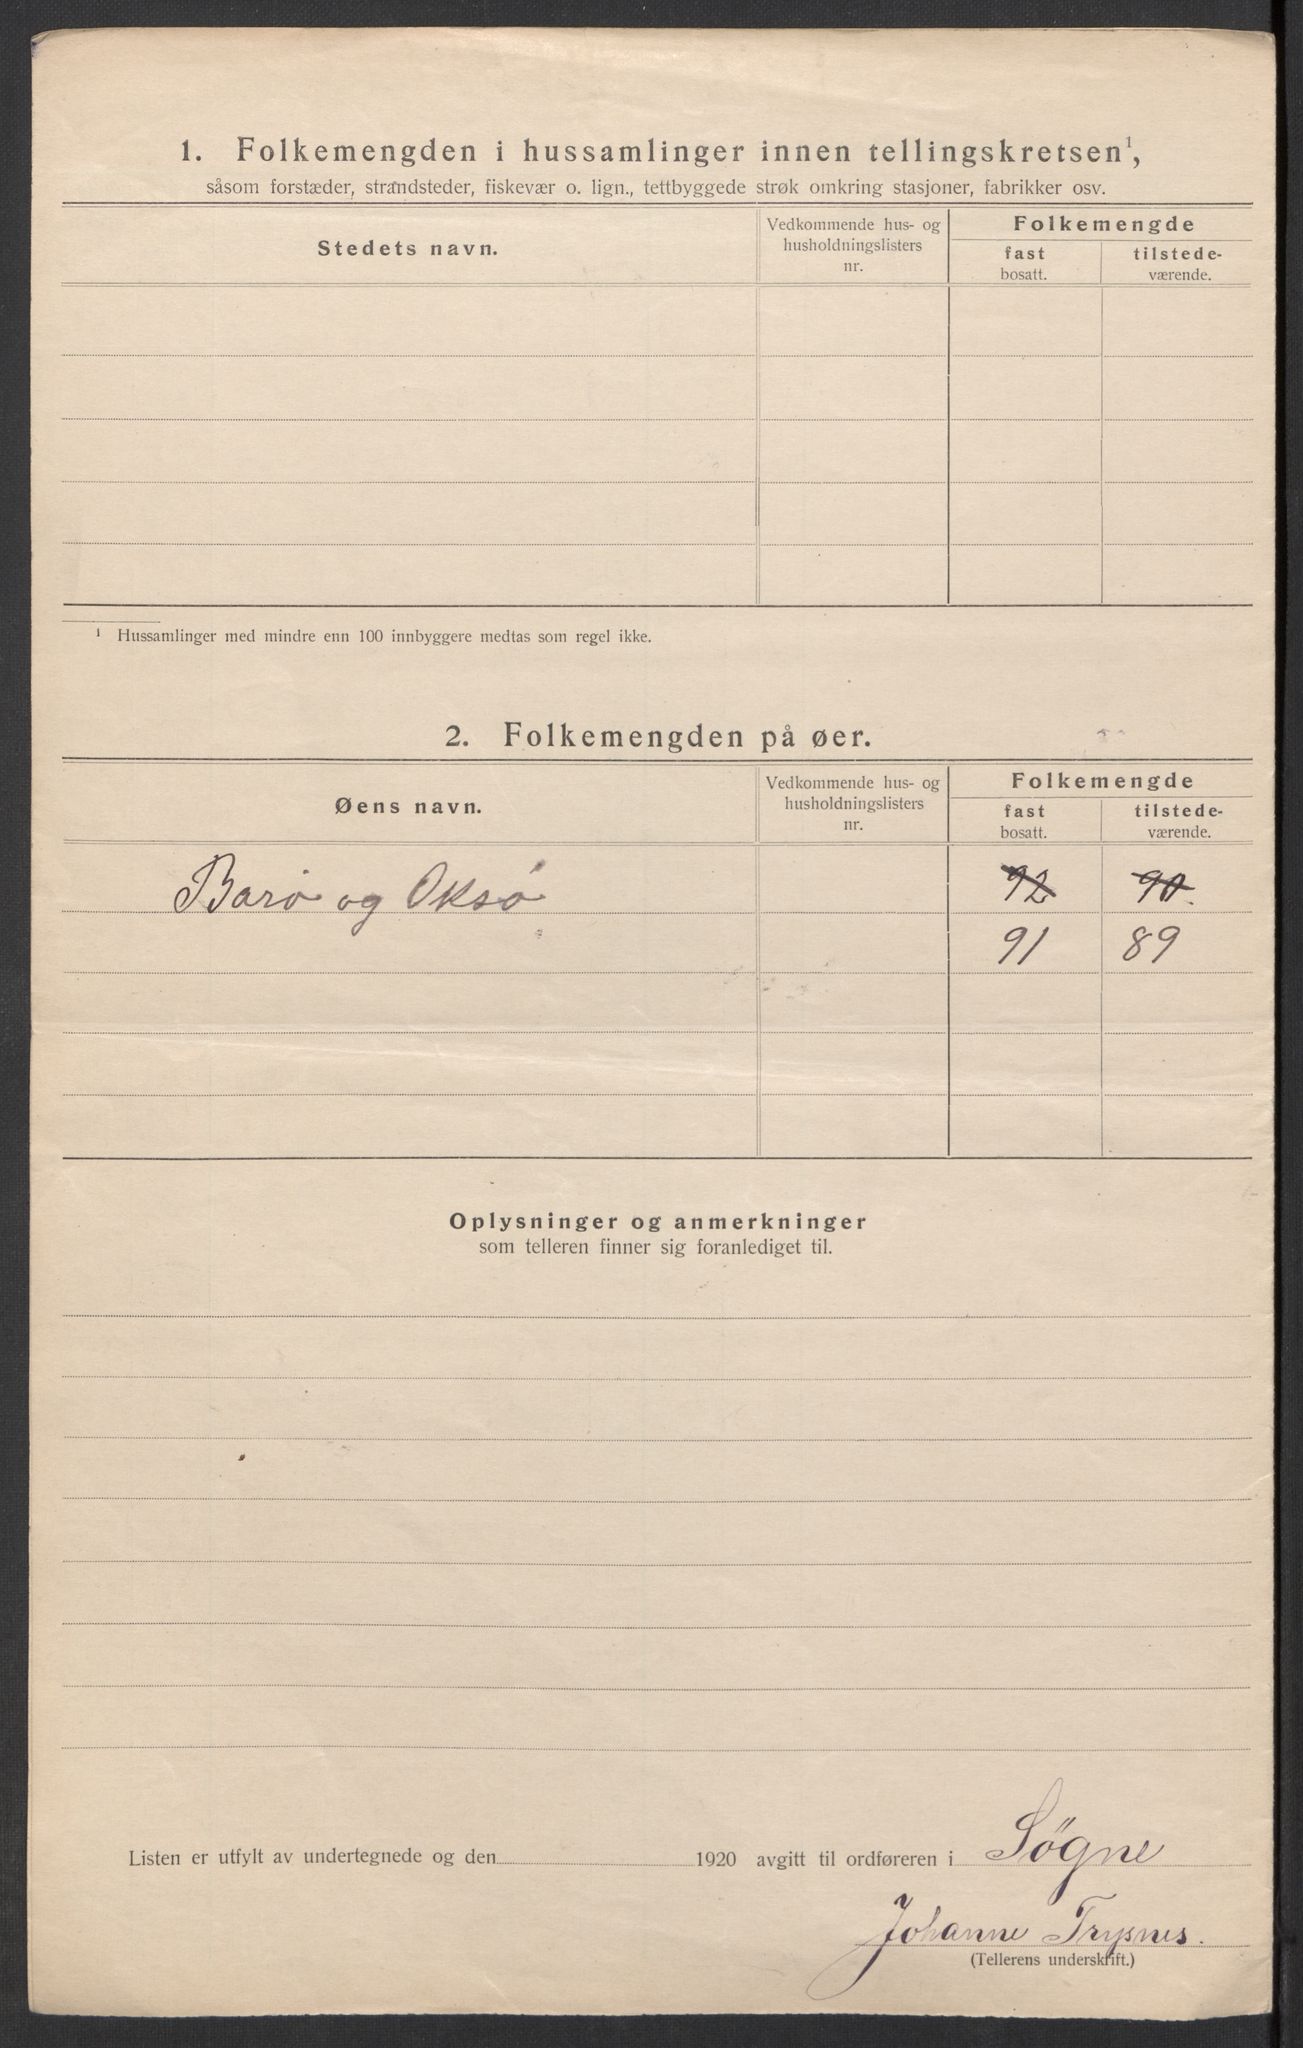 1. Folkemengden i hussamlinger innen tellingskretsen¹,
såsom forstæder, strandsteder, fiskevær o. lign., tettbyggede strøk omkring stasjoner, fabrikker osv.
Stedets navn.
Vedkommende hus- og
husholdningslisters
nr.
Folkemengde
fast
bosatt.
tilstede-
værende.
¹ Hussamlinger med mindre enn 100 innbyggere medtas som regel ikke.
2. Folkemengden på øer.
Øens navn.
Vedkommende hus- og
husholdningslisters
nr.
Folkemengde
fast
bosatt.
tilstede-
værende.
Barø og Oksø 92 90.
91 89
Oplysninger og anmerkninger
som telleren finner sig foranlediget til.
Listen er utfylt av undertegnede og den 1920 avgitt til ordføreren i Søgne
Johanne Trysnes.
(Tellerens underskrift.)